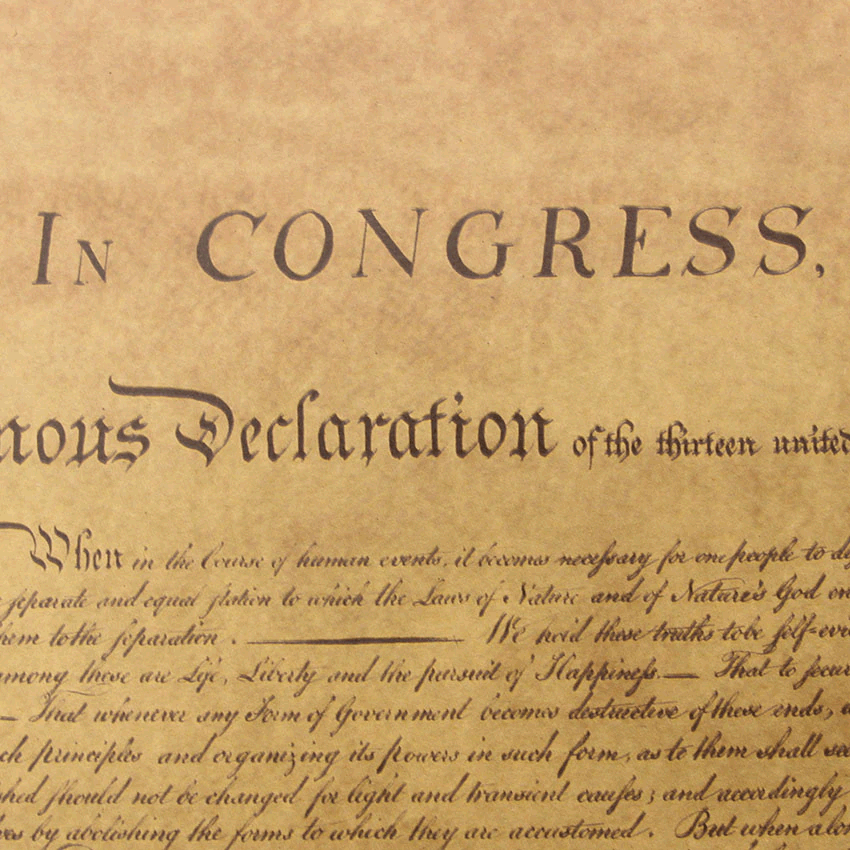 In CONGRESS,
nous Declaration of the thirteen united
When in the Course of human events, it becomes necessary for one people to
separate and equal station to which the Laws of Nature and of Nature's God
hem to the separation. We hold these truths to be self-evi
among these are Life, Liberty and the pursuit of Happiness.— That to secur
— That whenever any Form of Government becomes destructive of these ends,
ch principles and organizing its powers in such form, as to them shall see
shed should not be changed for light and transient causes; and accordingly
lves by abolishing the forms to which they are accustomed. But when a lon